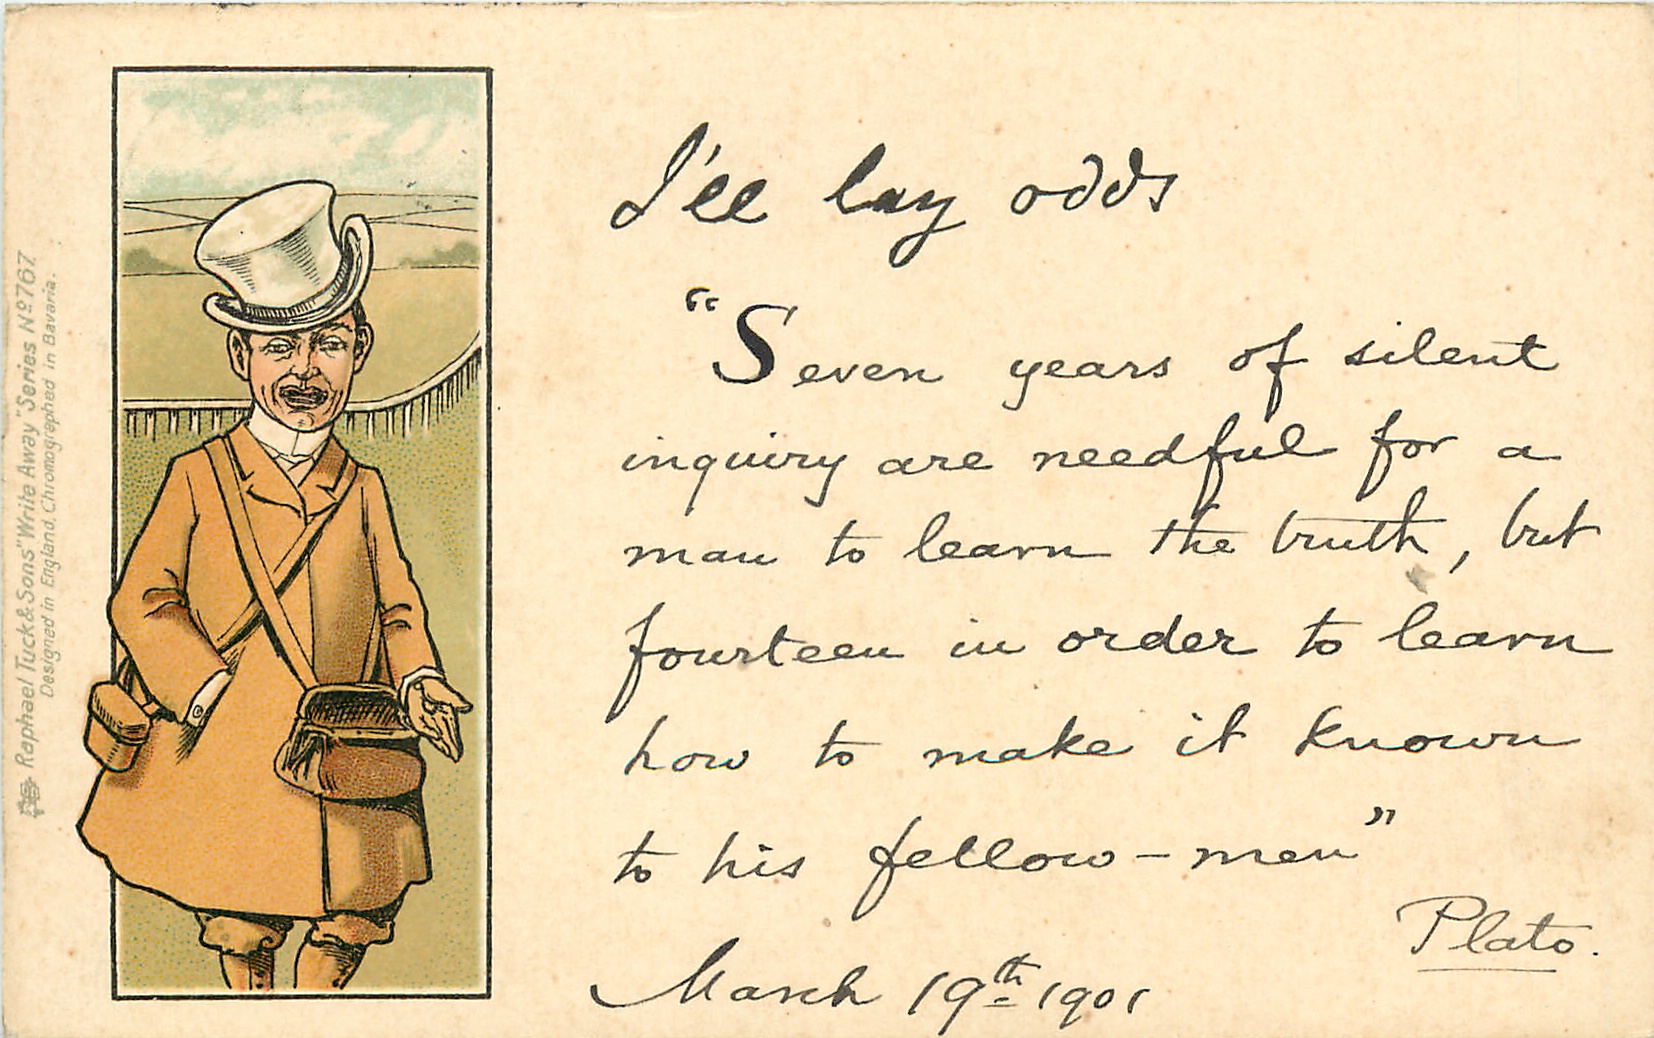 I'll lay odds
"Seven years of silent
inquiry are needful for a
man to learn the truth, but
fourteen in order to learn
how to make it known
to his fellow-men"
Plato.
March 19th 1901
Raphael Tuck & Sons' "Write Away" Series Nº 767.
Designed in England, Chromographed in Bavaria.